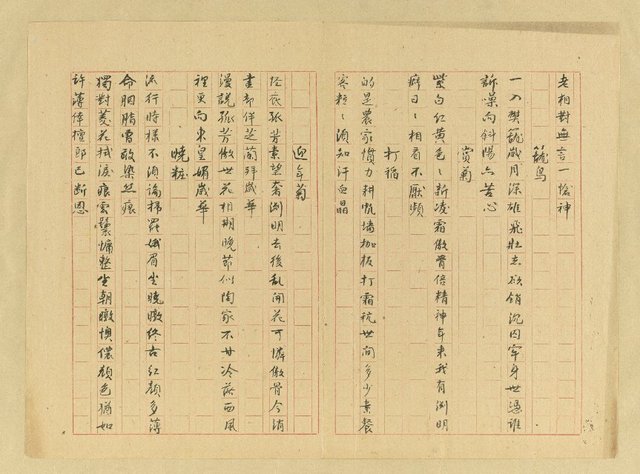 老相對無言一愴神
籠鳥
一入樊籠歲月深雄飛壯志欲銷沉囚牢身世憑誰
訴葉向斜陽亦苦心
賞菊
紫白紅黃色〻新凌霜傲骨倍精神年來我有淵明
癖日〻相看不厭頻
打稻
的是農家慣力耕帆墻枷板打霜秔世間多少素餐
客粒〻須知汗血晶
迎年菊
經夜孤芳素望奢淵明去後亂開花可憐傲骨今消
盡都伴芝蘭拜歲華
漫說孤芳傲世花相期晚節似陶家不甘冷落西風
裡更向東皇媚歲華
曉粧
流行時樣不須誇掃罷娥眉坐曉暾終古紅顏多薄
命胭脂曾敢染啼痕
獨對菱花拭淚痕雲鬟慵整坐朝暾懊儂顏色猶如
許薄倖檀郎已斷恩